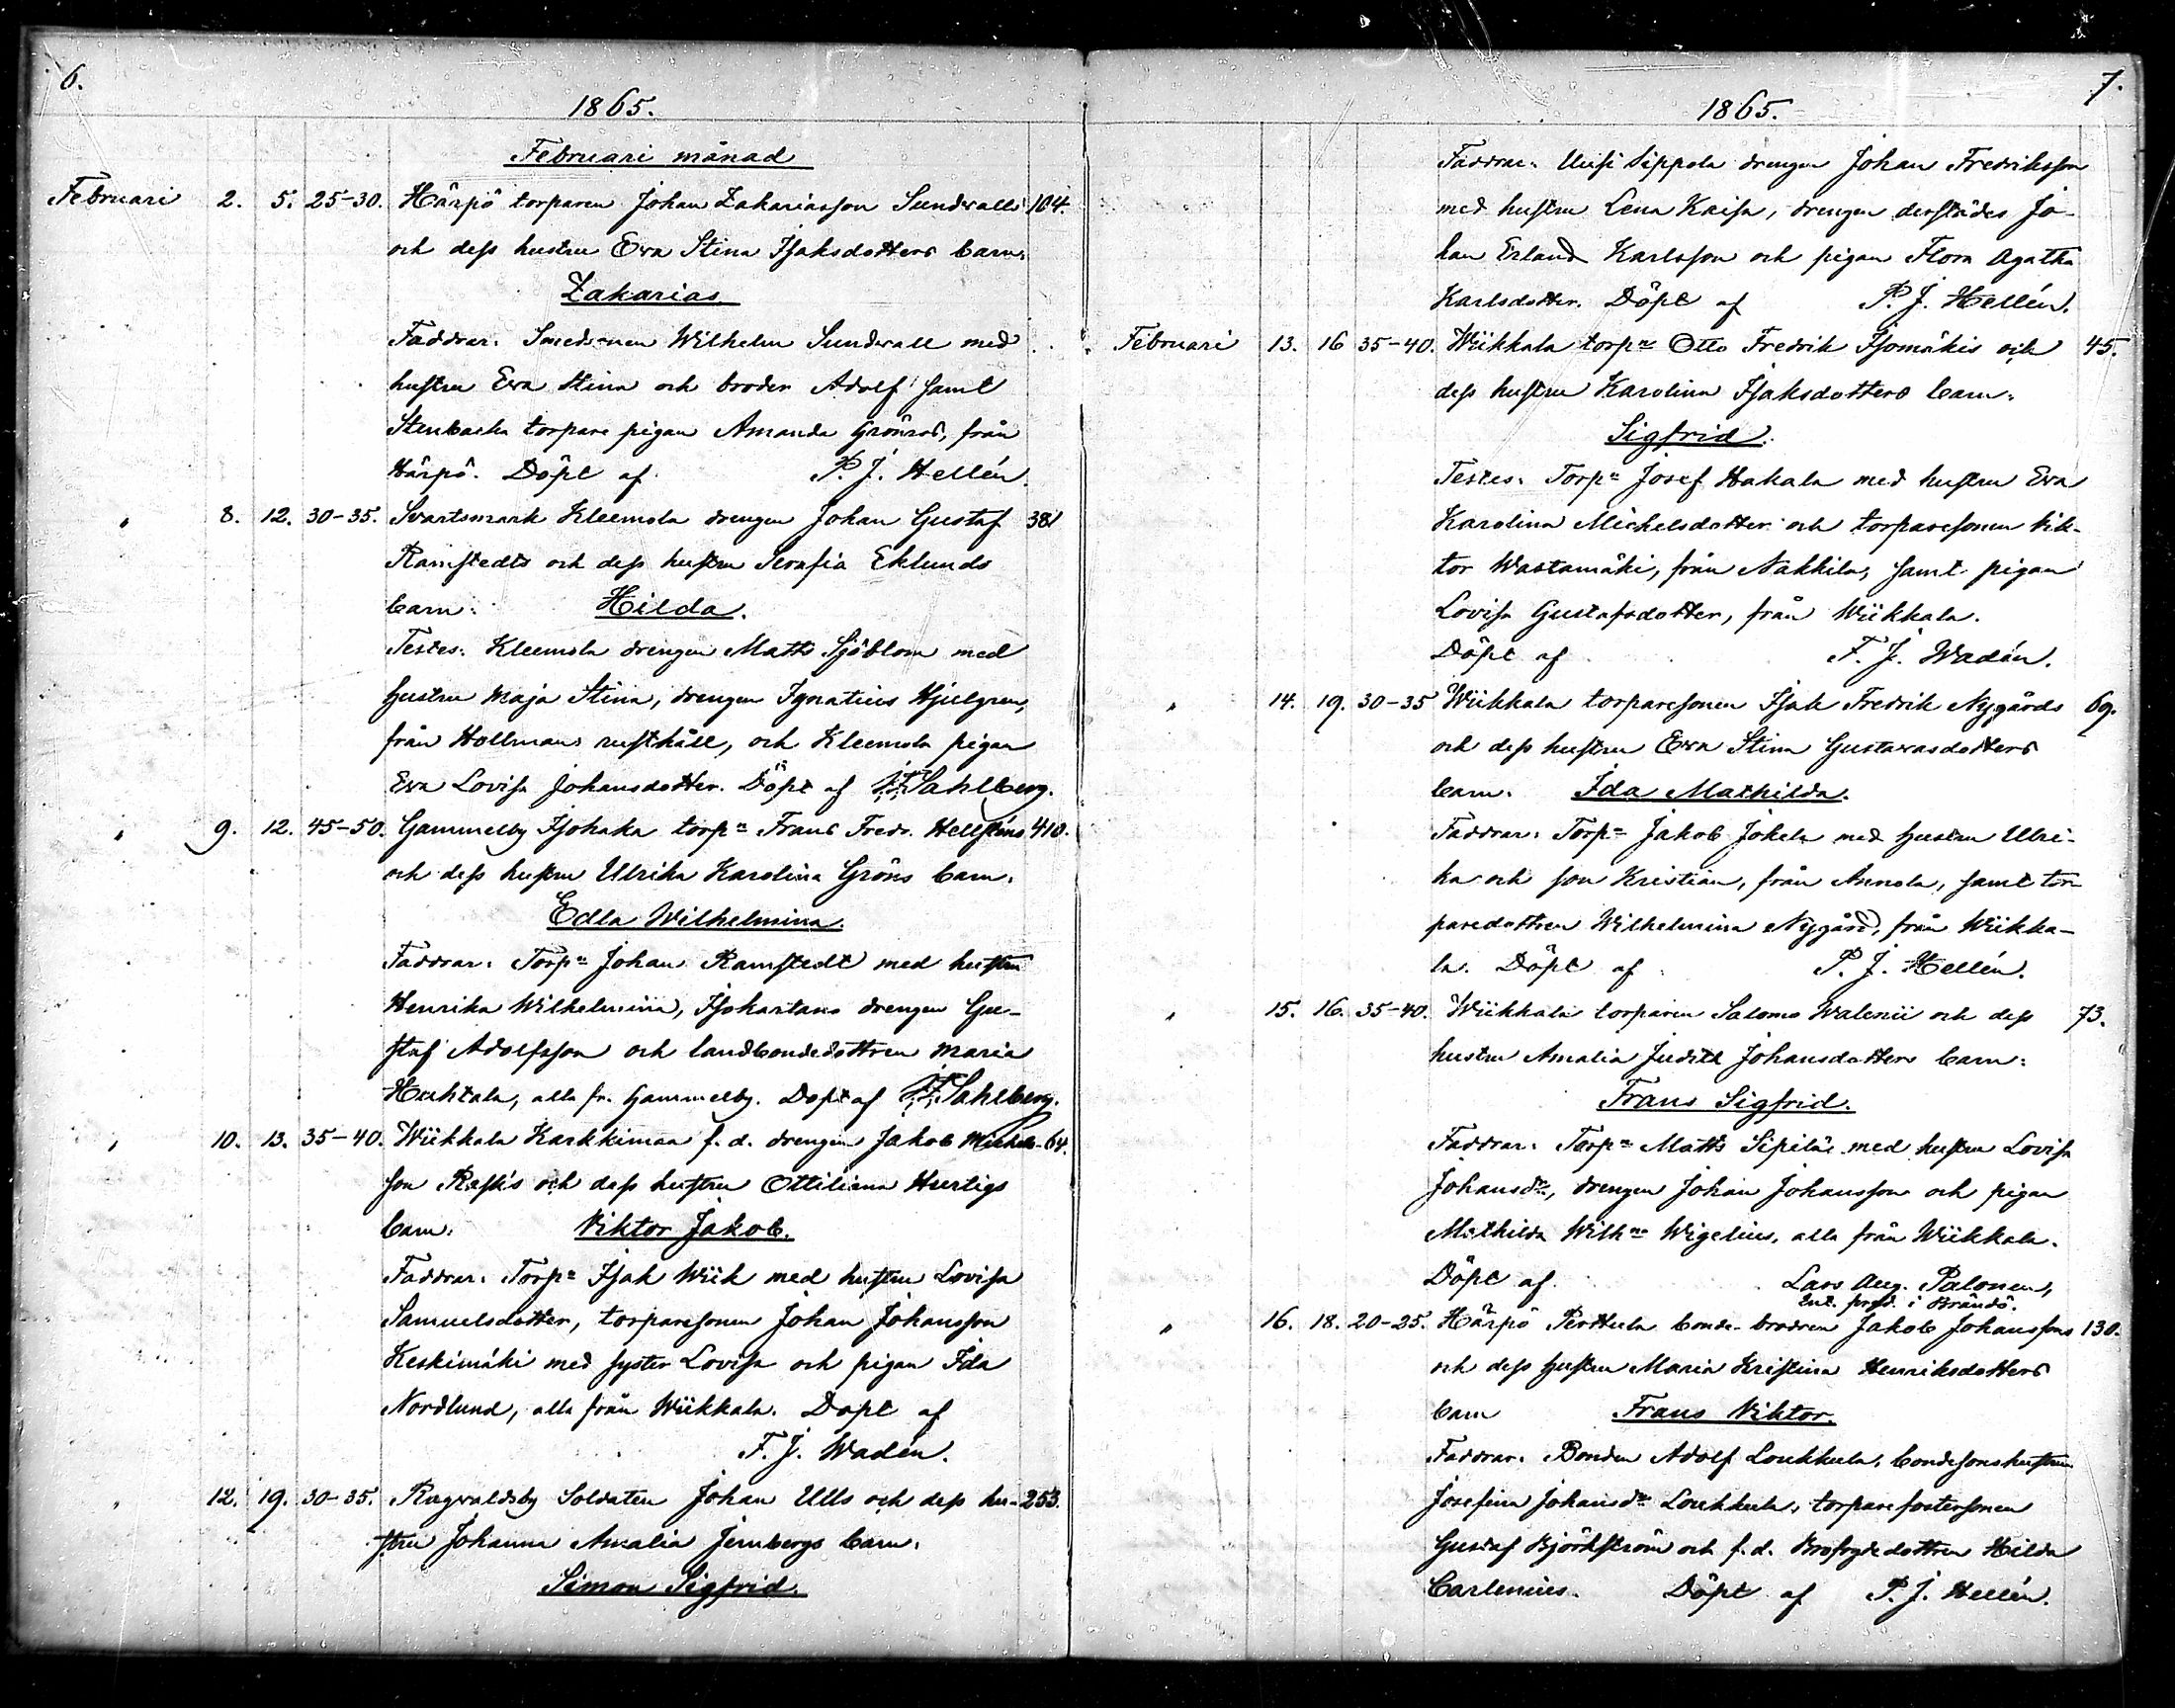 6.
1865.
Februari månad
Februari 2. 5. 25-30. Härpö torparen Johan Zakariasson Sundvalls 104.
och dess hustru Eva Stina Isaksdotters barn:
Zakarias
Faddrar: Smedsonen Wilhelm Sundvall med
hustru Eva Stina och broder Adolf samt
Stenbacka torpare pigan Amanda Grönros, från
Härpö. Döpt af P. J. Hellén.
" 8. 12. 30-35. Svartsmark Kleemola drengen Johan Gustaf 381
Ramstedts och dess hustru Serafia Eklunds
barn: Hilda.
Testes: Kleemola drengen Matts Sjöblom med
hustru Maja Stina, drengen Ignatius Hjulgren,
från Hollmans rusthåll, och Kleemola pigan
Eva Lovisa Johansdotter. Döpt af Sahlberg.
" 9. 12. 45-50. Gammelby Isohaka torpn Frans Fredr. Hellstens 410.
och dess hustru Ulrika Karolina Gröns barn:
Edla Wilhelmina.
Faddrar: Torpn Johan Ramstedt med hustru
Henrika Wilhelmina, Isokartano drengen Gu-
staf Adolfsson och landbondedottren Maria
Huhtala, alla fr. Gammelby. Döpt af Sahlberg.
" 10. 13. 35-40. Wiikkala Karkkimaa f. d. drengen Jakob Michels- 64.
son Rask's och dess hustru Ottiliana Hurtigs
barn: Viktor Jakob.
Faddrar: Torpn Isak Wiik med hustru Lovisa
Samuelsdotter, torparesonen Johan Johansson
Keskimäki med syster Lovisa och pigan Ida
Nordlund, alla från Wiikkala. Döpt af
F. J. Wadén.
" 12. 19. 30-35. Ragvaldsby Soldaten Johan Ulls och dess hu- 253.
stru Johanna Amalia Jernbergs barn:
Simon Sigfrid.
7.
1865.
Faddrar: Uusi Sippola drengen Johan Fredriksson
med hustru Lena Kaisa, drengen derstädes Jo-
han Erland Karlsson och pigan Flora Agatha
Karlsdotter. Döpt af P. J. Hellén.
Februari 13. 16 35-40. Wiikkala torpn Otto Fredrik Isomäkis och 45.
dess hustru Karolina Isaksdotters barn:
Sigfrid.
Testes: Torpn Josef Hakala med hustru Eva
Karolina Michelsdotter och torparesonen Vik-
tor Wastamäki, från Nakkila, samt pigan
Lovisa Gustafsdotter, från Wiikkala.
Döpt af F. J. Wadén.
" 14. 19. 30-35 Wiikkala torparesonen Isak Fredrik Nygårds 69.
och dess hustru Eva Stina Gustavasdotters
barn: Ida Mathilda.
Faddrar: Torpn Jakob Jokela med hustru Ulri-
ka och son Kristian, från Annola, samt tor-
paredottren Wilhelmina Nygård, från Wiikka-
la. Döpt af P. J. Hellén.
" 15. 16. 35-40. Wiikkala torparen Salomo Walenii och dess 73.
hustru Amalia Judith Johansdotters barn:
Frans Sigfrid.
Faddrar: Torpn Matts Sipilä med hustru Lovisa
Johansdr, drengen Johan Johansson och pigan
Mathilda Wilhna Wigelius, alla från Wiikkala.
Döpt af Lars Aug. Palonen,
pred. i Brändö.
" 16. 18. 20-25. Härpö Penttula bonde-brodren Jakob Johanssons 130.
och dess hustru Maria Kristina Henriksdotters
barn Frans Viktor.
Faddrar: Bonden Adolf Loukkula, bondesonshustrun
Josefina Johansdr Loukkula, torparefostersonen
Gustaf Björkström och f. d. Brofogdedottren Hilda
Carlenius. Döpt af P. J. Hellén.